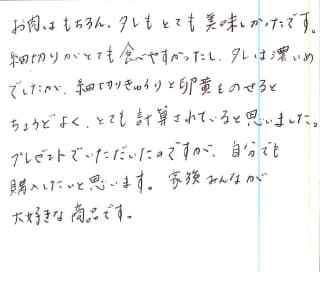 お肉はもちろん、タレもとても美味しかったです。
細切りがとても食べやすかったし、タレは濃いめ
でしたが、細切りきゅうりと卵黄ものせると
ちょうどよく、とても計算されていると思いました。
プレゼントでいただいたのですが、自分でも
購入したいと思います。家族みんなが
大好きな商品です。